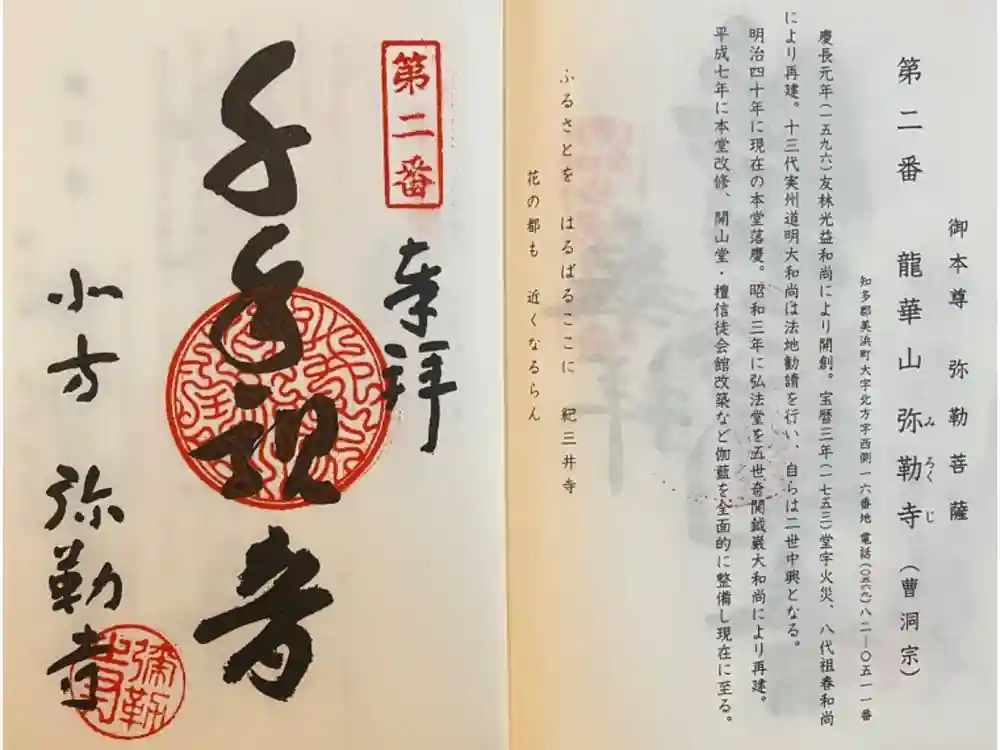 御本尊 弥勒菩薩
第二番 龍華山 弥勒寺(曹洞宗)
みろくじ
知多郡美浜町大字北方字西側一六番地 電話(〇五六九)八二―〇五一一番
慶長元年(一五九六)友林光益和尚により開創。宝暦三年(一七五三)堂宇火災、八代祖春和尚
により再建。十三代実州道明大和尚は法地勧請を行い、自らは二世中興となる。
明治四十年に現在の本堂落慶。昭和三年に弘法堂を五世奇関鉞巌大和尚により再建。
平成七年に本堂改修、開山堂・檀信徒会館改築など伽藍を全面的に整備し現在に至る。
ふるさとを はるばるここに 紀三井寺
花の都も 近くなるらん
第二番
奉拝
千手観音
北方 弥勒寺